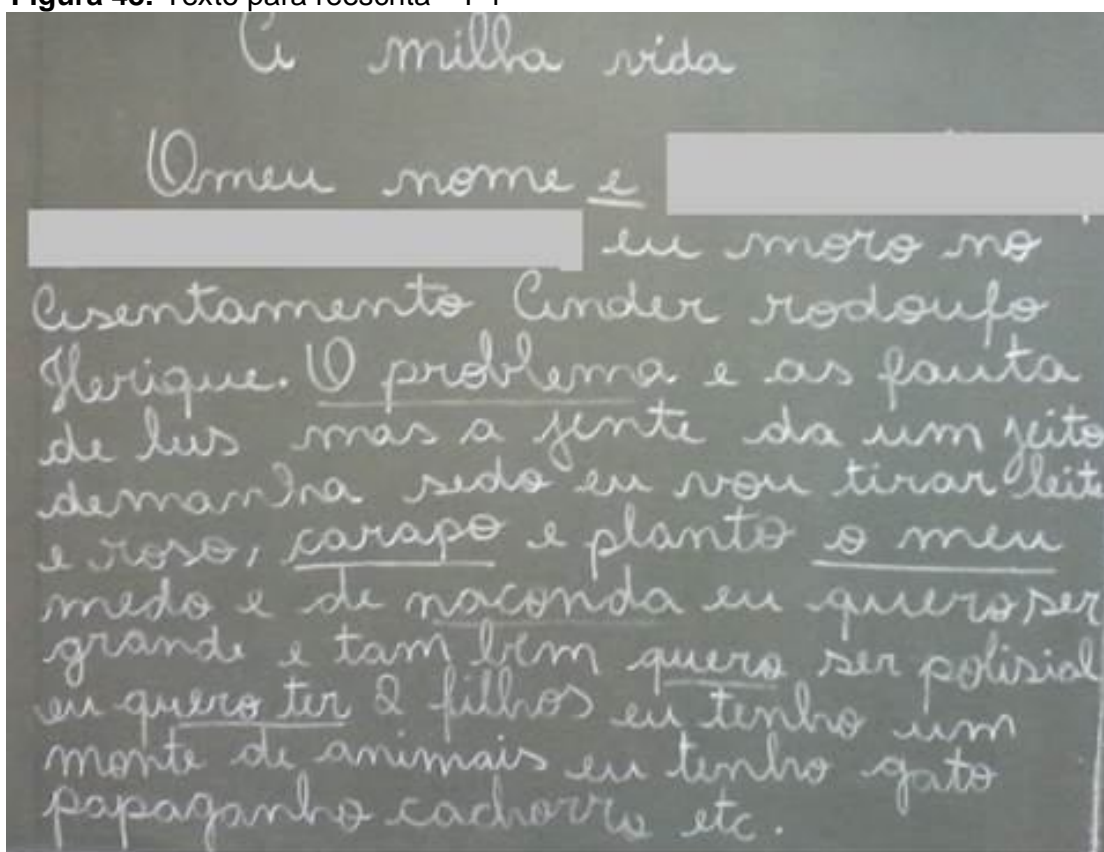 Figura 43: Texto para reescrita – T 1
A milha vida
Omeu nome e
eu moro no
Asentamento Ander rodoufo
Herique. O problema e as fauta
de lus mas a jente da um jeito
demanhna sedo eu vou tirar leite
e roso, carapo e planto o meu
medo e de naconda eu quero ser
grande e tam bem quero ser polisial
eu quero ter 2 filhos eu tenho um
monte de animais eu tenho gato
papaganho cachorro etc.